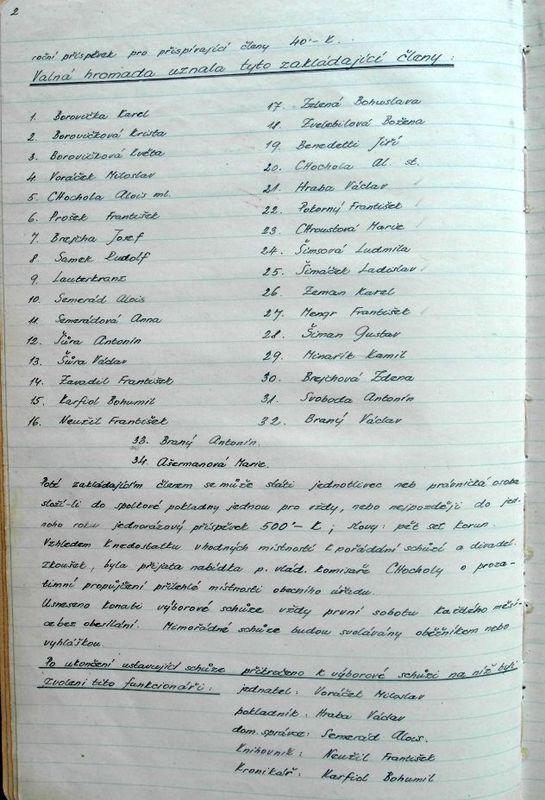 2
roční příspěvek pro přispívající členy 40'- K.
Valná hromada uznala tyto zakládající členy:
1. Borovička Karel
2. Borovičková Krista
3. Borovičková Květa
4. Voráček Miloslav
5. CHochola Alois ml.
6. Prošek František
7. Brejcha Josef
8. Samek Rudolf
9. Lauterkranz
10. Semerád Alois
11. Semerádová Anna
12. Šůra Antonín
13. Šůra Václav
14. Zavadil František
15. Karfiol Bohumil
16. Neužil František
17. Zelená Bohuslava
18. Zvelebilová Božena
19. Benedetti Jiří
20. CHochola Al. st.
21. Hraba Václav
22. Pokorný František
23. CHroustová Marie
24. Šimsová Ludmila
25. Šimáček Ladislav
26. Zeman Karel
27. Mengr František
28. Šiman Gustav
29. Minařík Kamil
30. Brejchová Zdena
31. Svoboda Antonín
32. Braný Václav
33. Braný Antonín.
34. Ašermanová Marie.
Poté zakládajícím členem se může státi jednotlivec neb právnická osoba
složí-li do spolkové pokladny jednou pro vždy, nebo nejpozději do jed-
noho roku jednorázový příspěvek 500'- K; slovy: pět set korun.
Vzhledem k nedostatku vhodných místností k pořádání schůzí a divadel.
zkoušek, byla přijata nabídka p. vlád. komisaře CHocholy o proza-
timní propůjčení přilehlé místnosti obecního úřadu.
Usneseno konati výborové schůze vždy první sobotu každého měsí-
ce bez obeslání. Mimořádné schůze budou svolávány oběžníkem nebo
vyhláškou.
Po ukončení ustavující schůze přikročeno k výborové schůzi na níž byli
zvoleni tito funkcionáři:
jednatel: Voráček Miloslav
pokladník: Hraba Václav
dom. správce: Semerád Alois.
Knihovník: Neužil František
Kronikář: Karfiol Bohumil